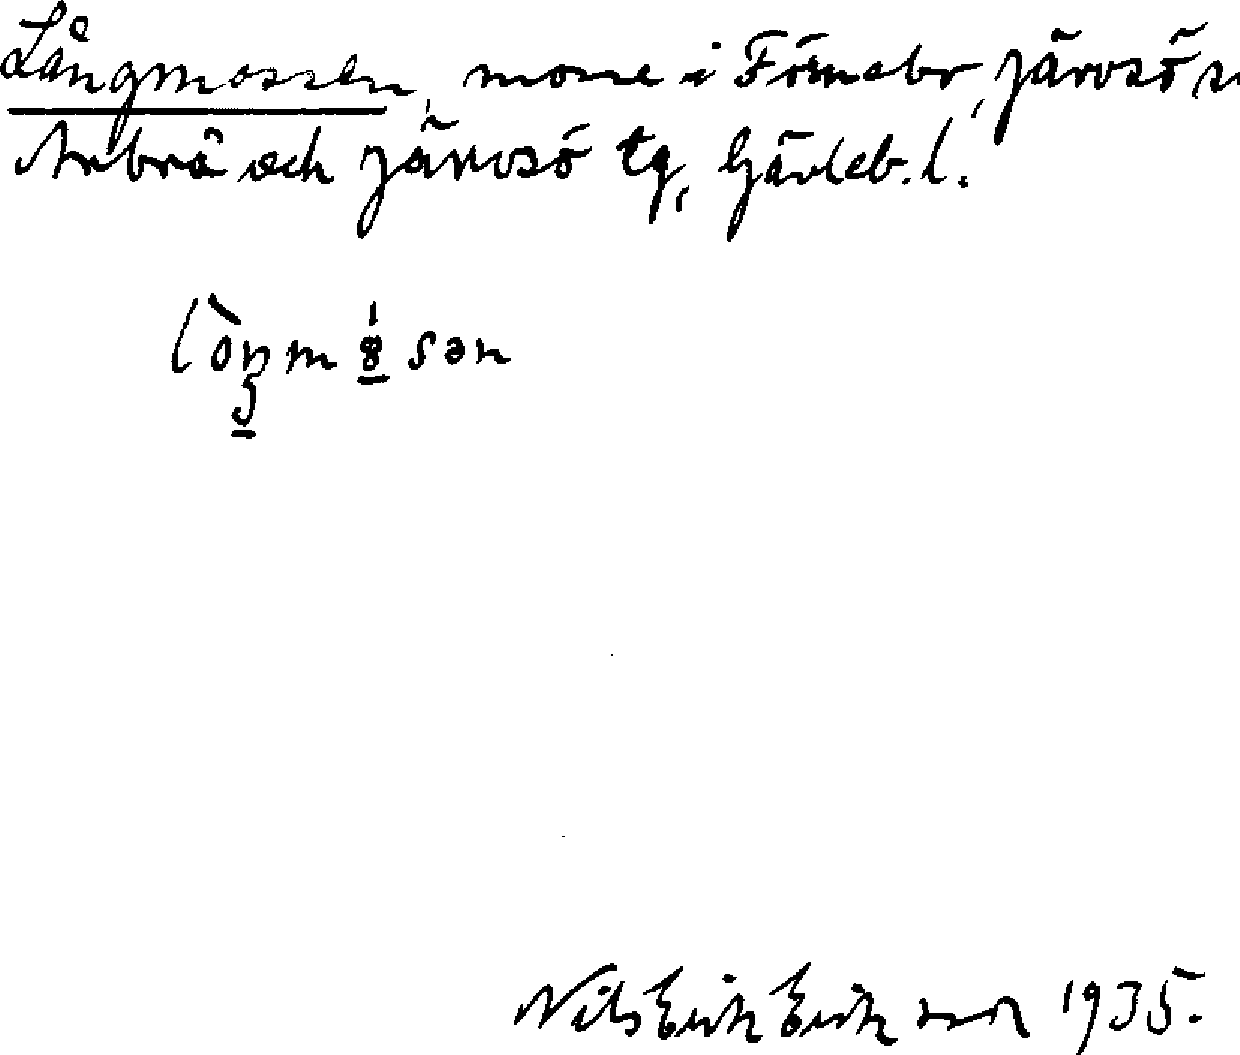 Långmossen, mosse i Förnebo, Järvsö s
Arbrå och Järvsö tg, Gävleb. l.
Nils Erik Eriksson 1935.